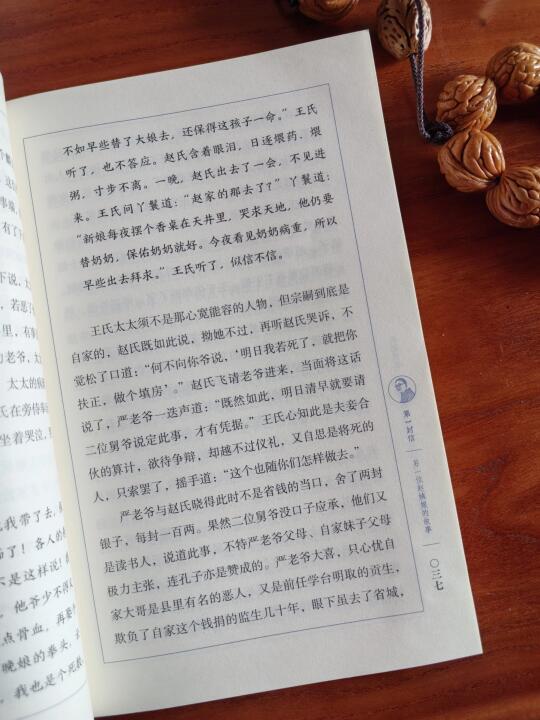 不如早些替了大娘去，还保得这孩子一命。”王氏
听了，也不答应。赵氏含着眼泪，日连煨药、煨
粥，寸步不离。一晚，赵氏出去了一会，不见进
来。王氏问丫鬟道：“赵家的那去了？”丫鬟道：
“新娘每夜摆个香桌在天井里，哭求天地，他仍要
替奶奶，保佑奶奶就好。今夜看见奶奶病重，所以
早些出去拜求。”王氏听了，似信不信。
王氏太太须不是那心宽能容的人物，但宗嗣到底是
自家的，赵氏既如此说，拗她不过，再听赵氏哭诉，不
觉松了口道：“何不向你爷说，‘明日我若死了，就把你
扶正，做个填房’。”赵氏飞请老爷进来，当面将这话
说了，严老爷一迭声道：“既然如此，明日清早就要请
二位舅爷说定此事，才有凭据。”王氏心知此是夫妾合
伙的算计，欲待争辩，却越不过仪礼，又自思是将死的
人，只索罢了，摇手道：“这个也随你们怎样做去。”
严老爷与赵氏晓得此时不是省钱的当口，舍了两封
银子，每封一百两。果然二位舅爷没口子应承，他们又
是读书人，说道此事，不特严老爷父母、自家妹子父母
极力主张，连孔子亦是赞成的。严老爷大喜，只心忧自
家大哥是县里有名的恶人，又是前任学台明取的贡生，
欺负了自家这个钱捐的监生几十年，眼下虽去了省城，
第一封信
〇三七
下说，
若恶了
里，有
力老爷，
太太的
氏在旁侍
坐着哭泣，
比我带了去，
各人的
不是这样说！
他爷少不得
点骨血，再要
晚娘的拳头、
，我也是个死数